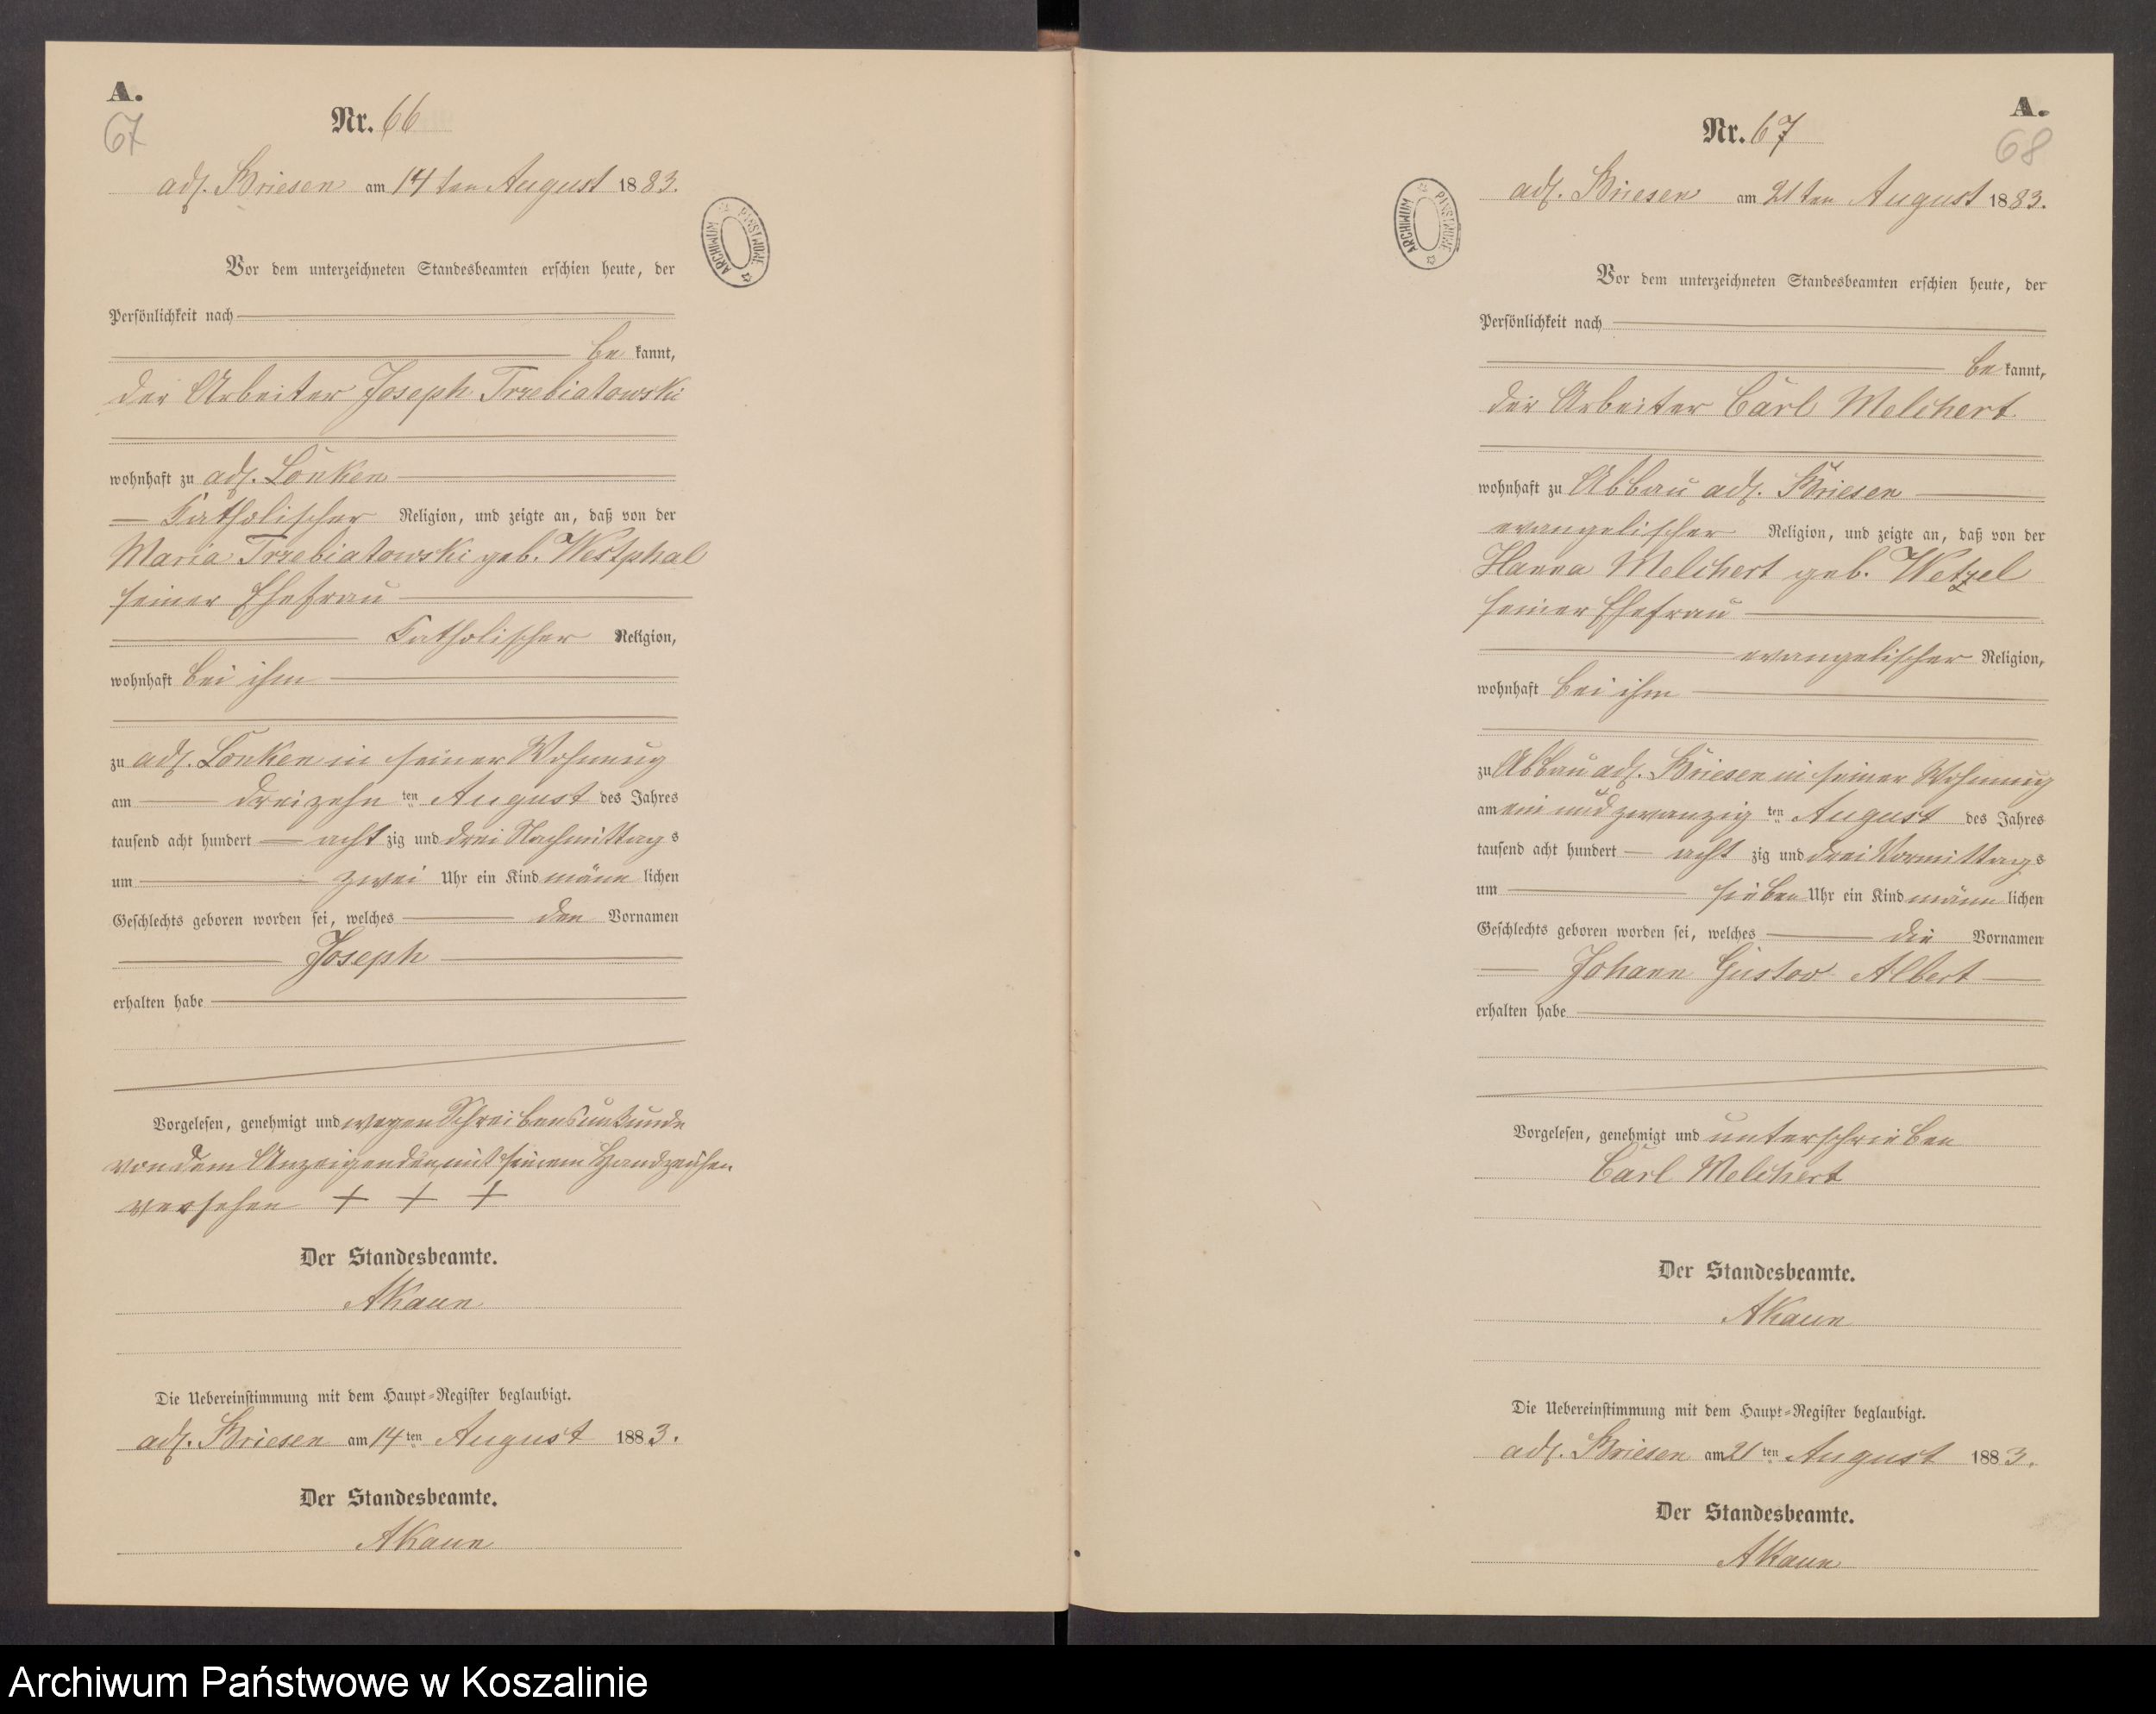 A.
67
Nr. 66
adl. Briesen am 14 ten August 1883.
ARCHIWUM PAŃSTWOWE
Vor dem unterzeichneten Standesbeamten erschien heute, der
Persönlichkeit nach
be kannt,
der Arbeiter Joseph Trzebiatowski
wohnhaft zu adl. Lonken
Katholischer Religion, und zeigte an, daß von der
Maria Trzebiatowski geb. Westphal
seiner Ehefrau
Katholischer Religion,
wohnhaft bei ihm
zu adl. Lonken in seiner Wohnung
am dreizehn ten August des Jahres
tausend acht hundert acht zig und drei Nachmittag s
um zwei Uhr ein Kind männ lichen
Geschlechts geboren worden sei, welches den Vornamen
Joseph
erhalten habe
Vorgelesen, genehmigt und wegen Schreibensunkunde
von dem Anzeigenden mit seinem Handzeichen
versehen + + +
Der Standesbeamte.
AKaun
Die Uebereinstimmung mit dem Haupt-Register beglaubigt.
adl. Briesen am 14 ten August 1883.
Der Standesbeamte.
AKaun
A.
68
Nr. 67
adl. Briesen am 21 ten August 1883.
ARCHIWUM PAŃSTWOWE
Vor dem unterzeichneten Standesbeamten erschien heute, der
Persönlichkeit nach
be kannt,
der Arbeiter Carl Melchert
wohnhaft zu Abbau adl. Briesen
evangelischer Religion, und zeigte an, daß von der
Hanna Melchert geb. Wetzel
seiner Ehefrau
evangelischer Religion,
wohnhaft bei ihm
zu Abbau adl. Briesen in seiner Wohnung
am ein und zwanzig ten August des Jahres
tausend acht hundert acht zig und drei Vormittag s
um sieben Uhr ein Kind männ lichen
Geschlechts geboren worden sei, welches die Vornamen
Johann Gustav Albert
erhalten habe
Vorgelesen, genehmigt und unterschrieben
Carl Melchert
Der Standesbeamte.
AKaun
Die Uebereinstimmung mit dem Haupt-Register beglaubigt.
adl. Briesen am 21 ten August 1883.
Der Standesbeamte.
AKaun
Archiwum Państwowe w Koszalinie